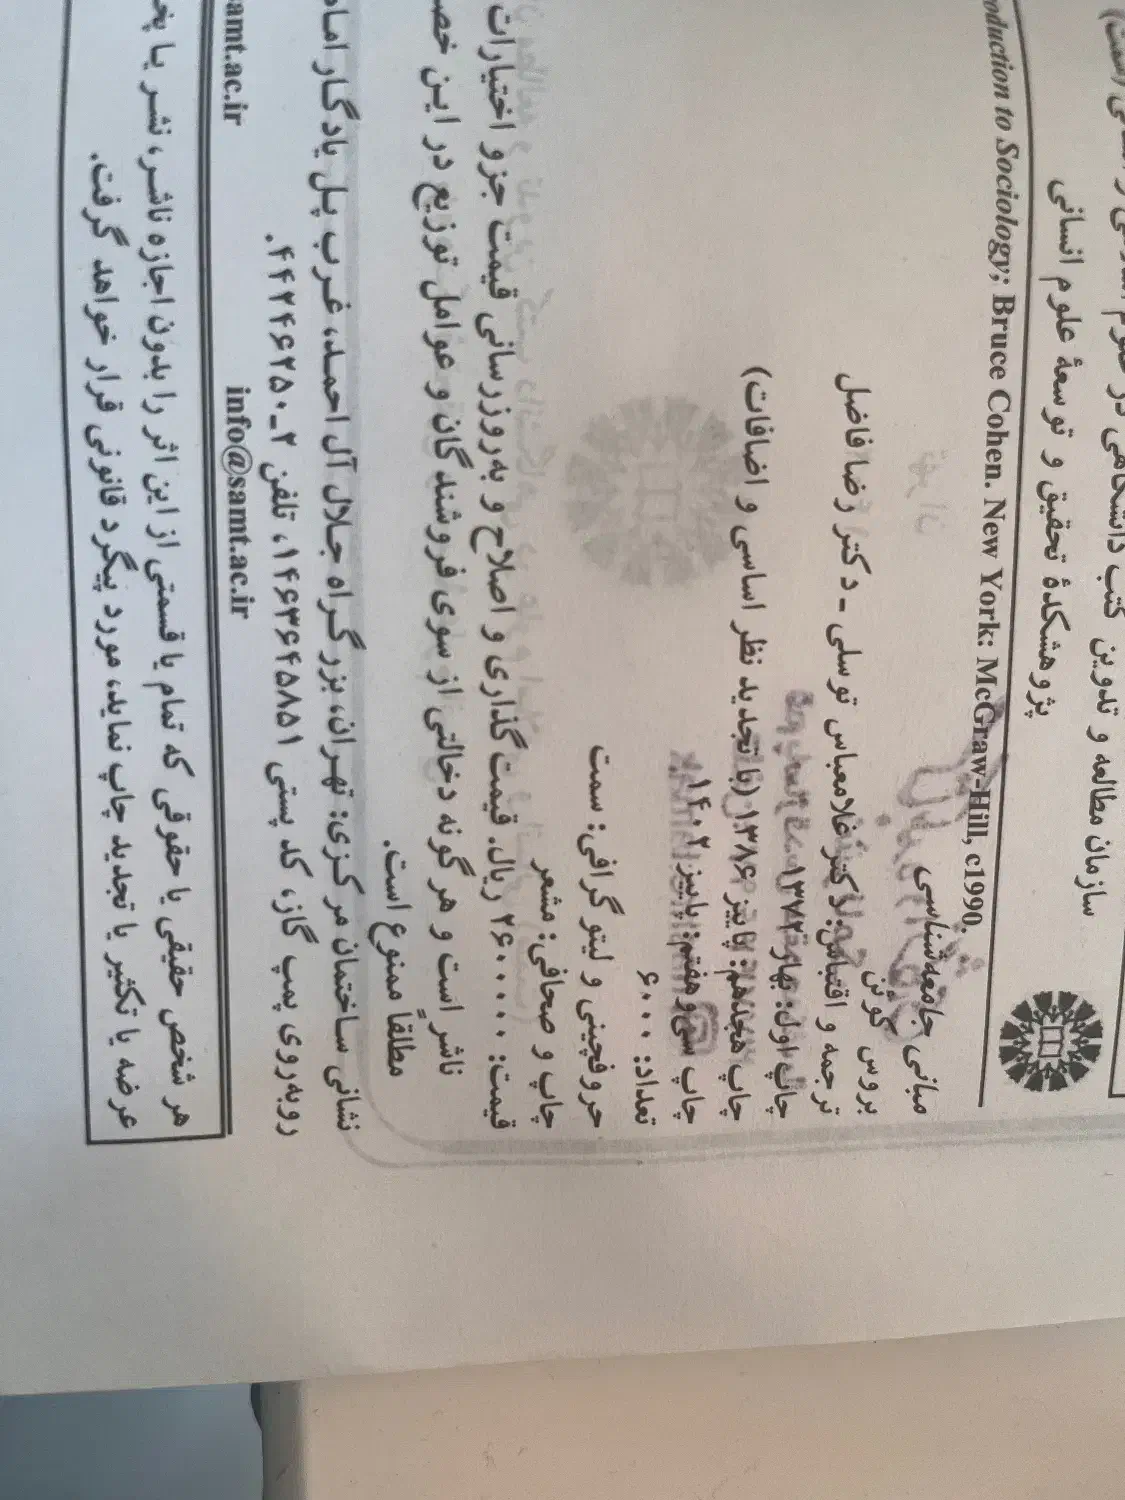 سازمان مطالعه و تدوین کتب دانشگاهی در علوم
پژوهشکدهٔ تحقیق و توسعهٔ علوم انسانی
oduction to Sociology; Bruce Cohen. New York: McGraw-Hill, c1990.
مبانی جامعه‌شناسی
بروس کوئن
ترجمه و اقتباس: دکتر غلامعباس توسلی ـ دکتر رضا فاضل
چاپ اول: بهار ۱۳۷۲
چاپ هجدهم: پاییز ۱۳۸۶ (با تجدید نظر اساسی و اضافات)
چاپ سی‌وهفتم: پاییز ۱۴۰۲
تعداد: ۶۰۰۰
حروفچینی و لیتوگرافی: سمت
چاپ و صحافی: مشعر
قیمت: ۲۶۰۰۰۰۰ ریال. قیمت‌گذاری و اصلاح و به‌روزرسانی قیمت جزو اختیارات
ناشر است و هرگونه دخالتی از سوی فروشندگان و عوامل توزیع در این خص
مطلقاً ممنوع است.
نشانی ساختمان مرکزی: تهران، بزرگراه جلال آل احمد، غرب پل یادگار اما
روبه‌روی پمپ گاز، کد پستی ۱۴۶۳۶۴۵۸۵۱، تلفن ۲ـ۴۴۲۴۶۲۵۰.
info@samt.ac.ir amt.ac.ir
هر شخص حقیقی یا حقوقی که تمام یا قسمتی از این اثر را بدون اجازه ناشر، نشر یا پخ
عرضه یا تکثیر یا تجدید چاپ نماید، مورد پیگرد قانونی قرار خواهد گرفت.